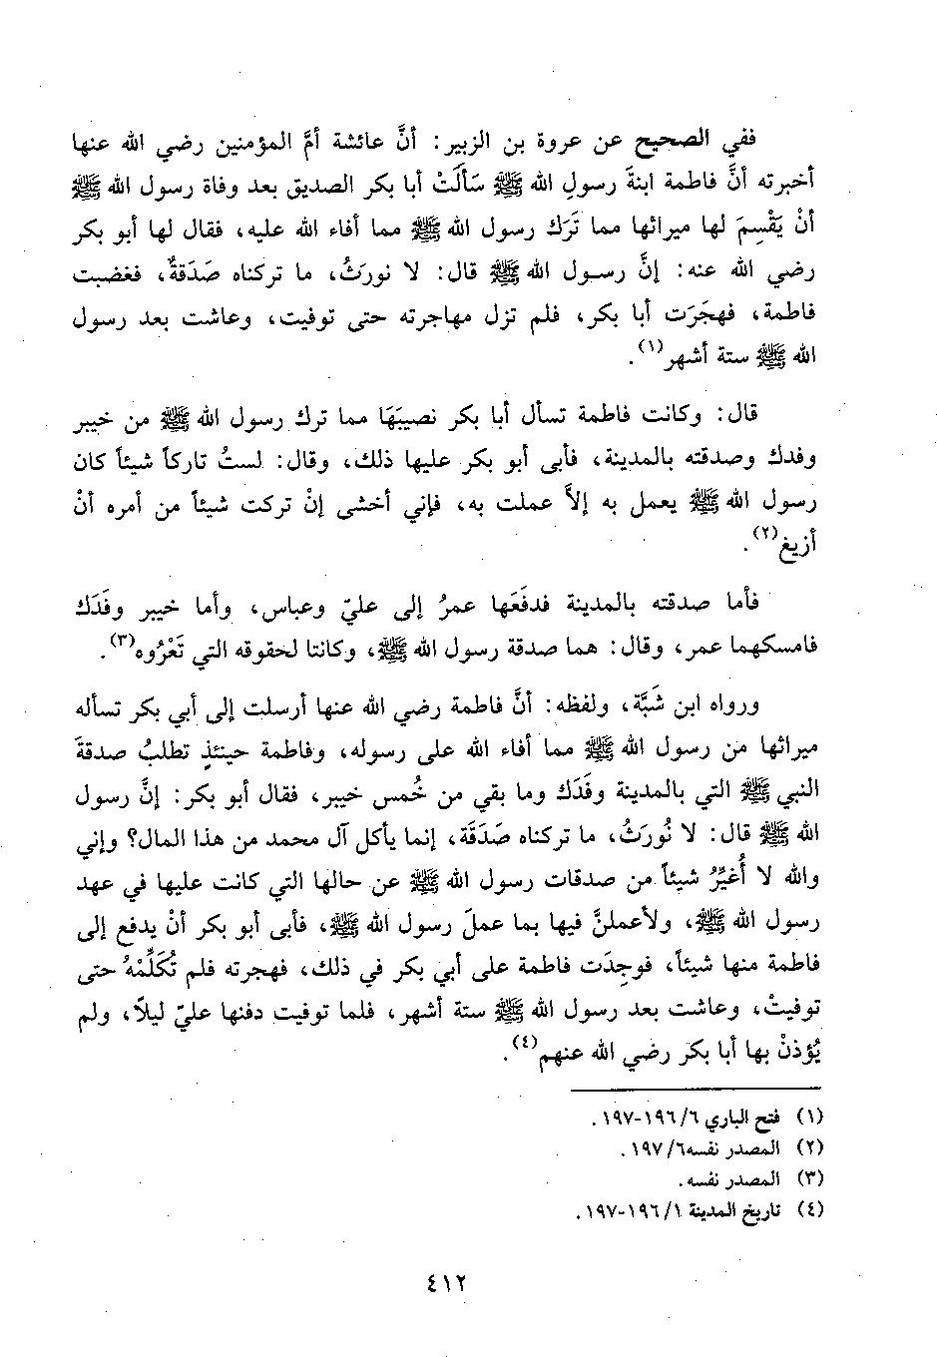 ففي الصحيح عن عروة بن الزبير: أنَّ عائشة أمَّ المؤمنين رضي الله عنها
أخبرته أنَّ فاطمة ابنةَ رسولِ الله ﷺ سَأَلَتْ أبا بكر الصديق بعد وفاة رسول الله ﷺ
أنْ يَقْسِمَ لها ميراثها مما تَرَك رسول الله ﷺ مما أفاء الله عليه، فقال لها أبو بكر
رضي الله عنه: إنَّ رسول الله ﷺ قال: لا نورَثُ، ما تركناه صَدَقةٌ، فغضبت
فاطمة، فهجَرَت أبا بكر، فلم تزل مهاجرته حتى توفيت، وعاشت بعد رسول
الله ﷺ ستة أشهر(١).
قال: وكانت فاطمة تسأل أبا بكر نصيبَهَا مما ترك رسول الله ﷺ من خيبر
وفدك وصدقته بالمدينة، فأبى أبو بكر عليها ذلك، وقال: لستُ تاركاً شيئاً كان
رسول الله ﷺ يعمل به إلاَّ عملت به، فإني أخشى إنْ تركت شيئاً من أمره أنْ
أزيغ(٢).
فأما صدقته بالمدينة فدفَعَها عمرُ إلى عليّ وعباس، وأما خيبر وفَدَك
فامسكهما عمر، وقال: هما صدقة رسول الله ﷺ، وكانتا لحقوقه التي تَعْرُوه(٣).
ورواه ابن شَبَّة، ولفظه: أنَّ فاطمة رضي الله عنها أرسلت إلى أبي بكر تسأله
ميراثها من رسول الله ﷺ مما أفاء الله على رسوله، وفاطمة حينئذٍ تطلبُ صدقةَ
النبي ﷺ التي بالمدينة وفَدَك وما بقي من خُمس خيبر، فقال أبو بكر: إنَّ رسول
الله ﷺ قال: لا نُورَثُ، ما تركناه صَدَقَة، إنما يأكل آل محمد من هذا المال؟ وإني
والله لا أُغيِّرُ شيئاً من صدقات رسول الله ﷺ عن حالها التي كانت عليها في عهد
رسول الله ﷺ، ولأعملنَّ فيها بما عملَ رسول الله ﷺ، فأبى أبو بكر أنْ يدفع إلى
فاطمة منها شيئاً، فوجِدَت فاطمة على أبي بكر في ذلك، فهجرته فلم تُكَلِّمْهُ حتى
توفيتْ، وعاشت بعد رسول الله ﷺ ستة أشهر، فلما توفيت دفنها عليّ ليلاً، ولم
يُؤذنْ بها أبا بكر رضي الله عنهم(٤).
(١) فتح الباري ٦/ ١٩٦-١٩٧.
(٢) المصدر نفسه ٦/ ١٩٧.
(٣) المصدر نفسه.
(٤) تاريخ المدينة ١/ ١٩٦-١٩٧.
٤١٢